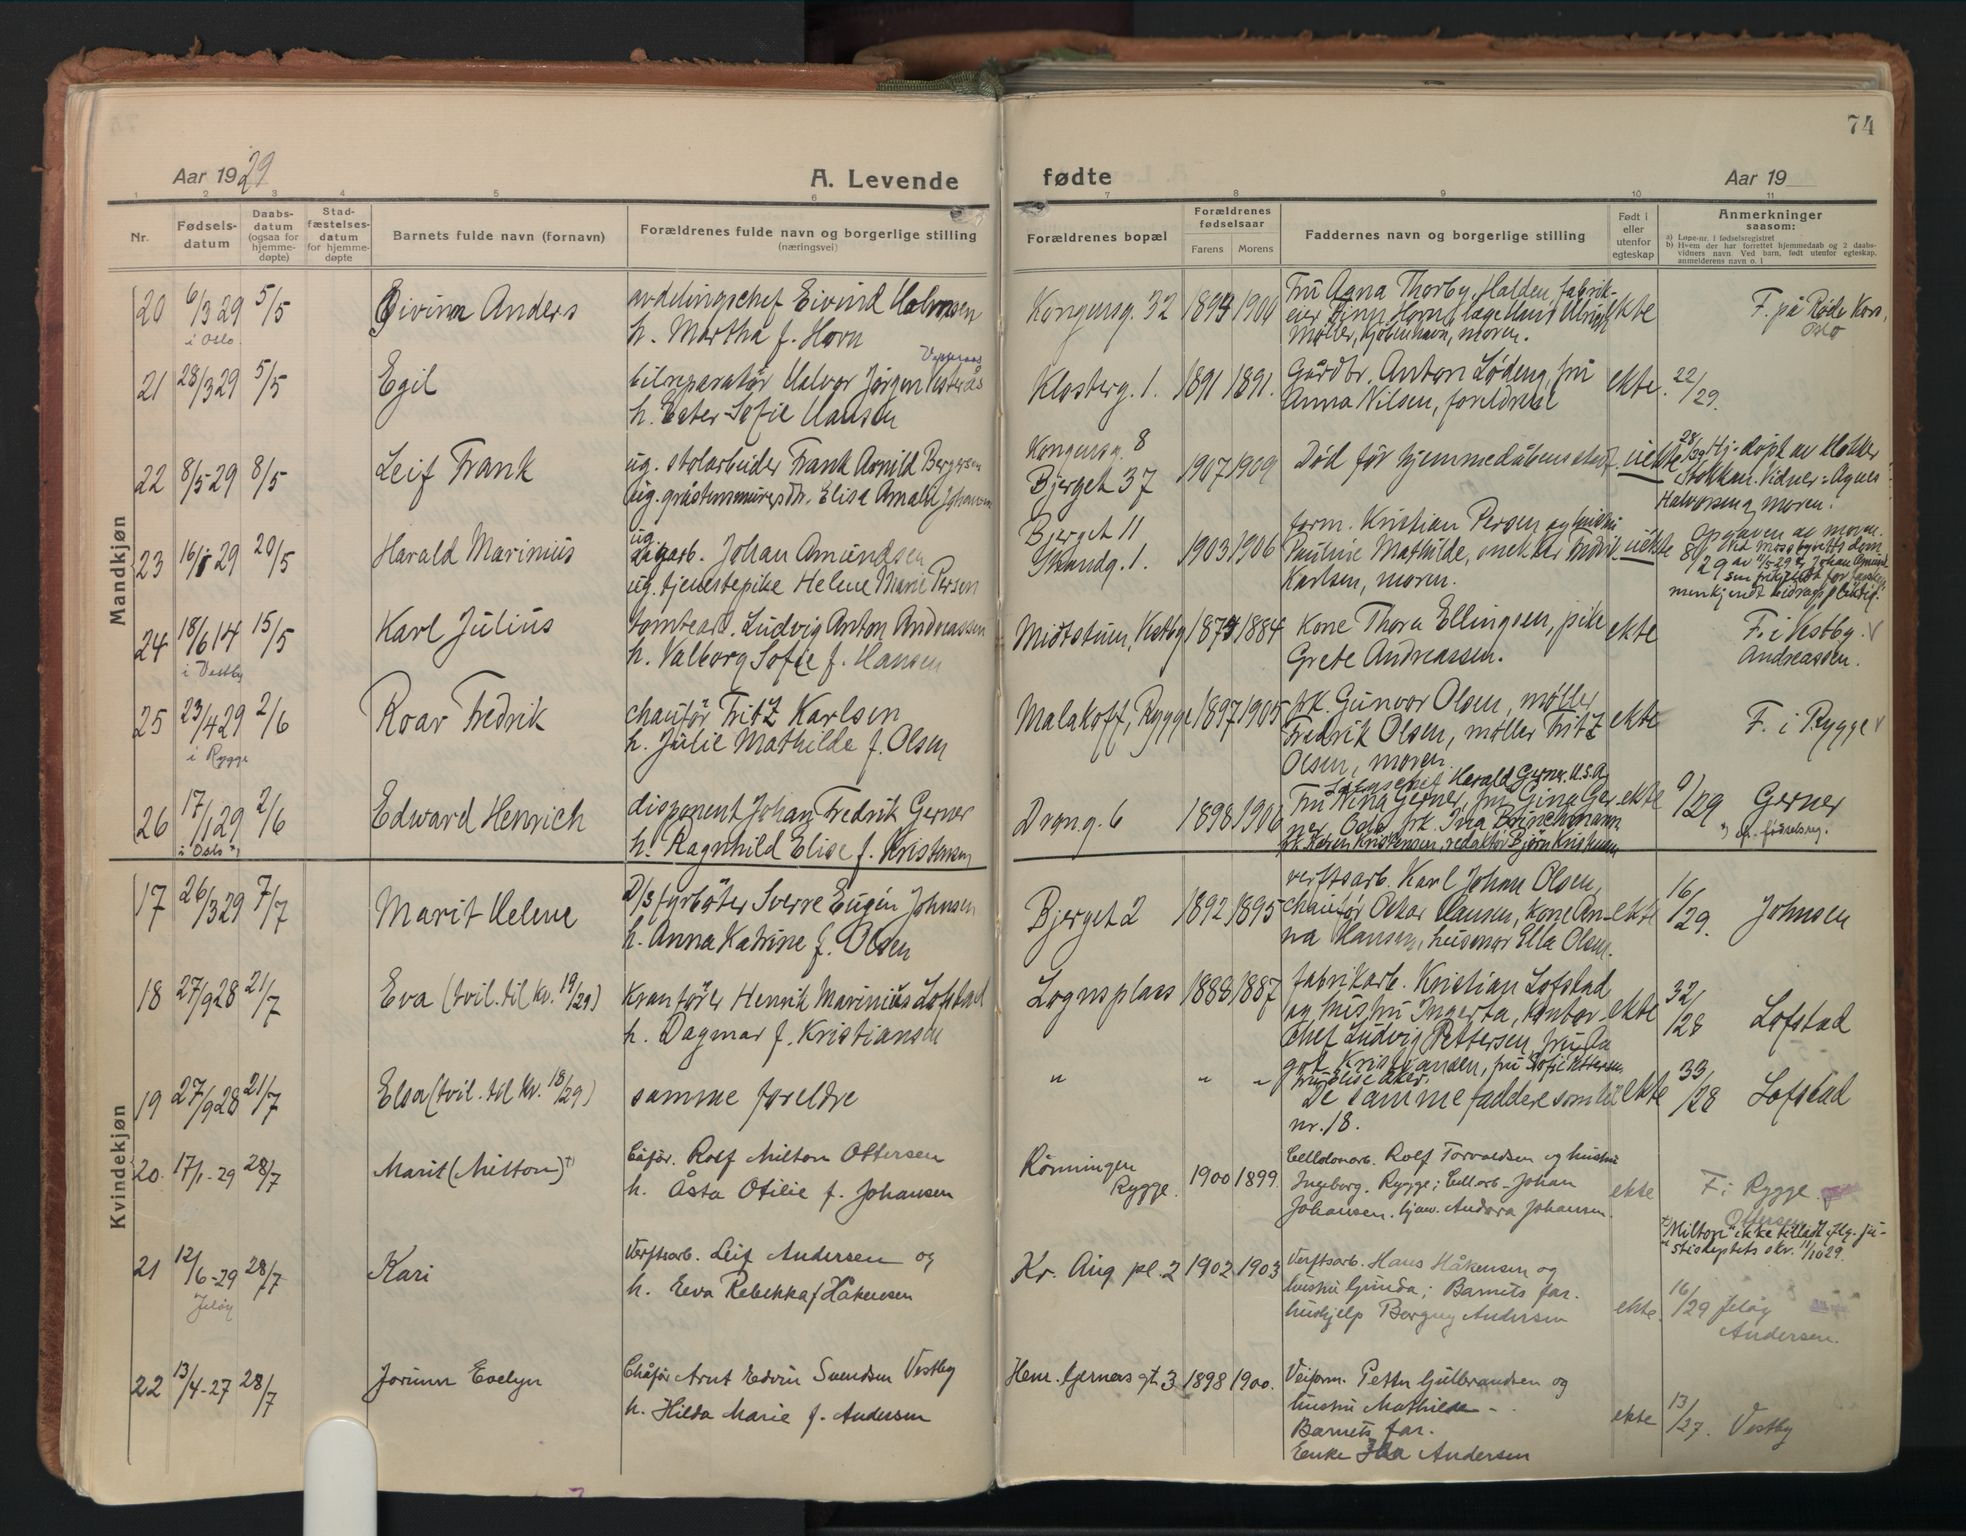 74
Aar 1929
A. Levende
fødte
Aar 19
1 2 3 4 5 6 7 8 9 10 11
Nr.
Fødsels-
datum
Daabs-
datum
(ogsaa for
hjemme-
døpte)
Stad-
fæstelses-
datum
for hjemme-
døpte
Barnets fulde navn (fornavn)
Forældrenes fulde navn og borgerlige stilling
(næringsvei)
Forældrenes bopæl
Forældrenes
fødselsaar
Farens Morens
Faddernes navn og borgerlige stilling
Født i
eller
utenfor
egteskap
Anmerkninger
saasom:
a) Løpe-nr. i fødselsregistret
b) Hvem der har forrettet hjemmedaab og 2 daabs-
vidners navn. Ved barn, født utenfor egteskap,
anmelderens navn o. l
Mandkjøn
20 6/3 29 5/5
i Oslo
Eivinn Anders
avdelingschef Eivind Holmsen
h. Martha f. Horn
Kongensg. 32
Fru Agna Thorby, Halden, fabrik-
eier Finn Horn, læge Hans Ulrich
Møller, Kjøbenhavn, moren.
ekte
F. på Røde Kors,
Oslo
21 28/3 29 5/5
Egil
bilreparatør Halvor Jørgen Vesterås
h. Ester Sofie Hansen
Klosterg. 1. 1891 1891.
Gårdbr. Anton Lødeng, fru
Anna Nilsen, foreldrene
ekte. 22/29.
22 8/5-29 8/5
Leif Frank
ug. stolarbeider Frank Arnild Bergersen
ug. Elisa Amalie Johansen
Kongensg. 8
Bjerget 37
1907 1909
Død før hjemmedåbens stadf.
uekte
28/29 Hj-døpt av klokker
Stokkan. Vidner: Agnes
Halvorsen og moren.
23 16/1 29 20/5
Harald Marinius
ug.
Johan Amundsen
ug. tjenestepike Helene Marie Persen
Bjerget 11
Strandg. 1. 1903 1906
form. Kristian Persen og hustru
Pauline Mathilde,
Karlsen, moren.
uekte
Opgaven av moren.
8/29 Ved Mossbyretts dom
av 11/5-29 er Johan Amund-
sen frikjendt for farskap
men kjendt bidragspliktig.
24 18/6 14 15/5
i Vestby
Karl Julius
tomtearb. Ludvig Anton Andreassen
h. Valborg Sofie f. Hansen
Midtstuen, Vestby 1884
Kone Thora Ellingsen, pike
Grete Andreassen.
ekte
F. i Vestby. v
Andreassen.
25 23/4 29 2/6
i Rygge
Roar Fredrik
chauför Fritz Karlsen
h. Julie Mathilde f. Olsen
Malakoff, Rygge 1897 1905
frk. Gunvor Olsen, møller
Fredrik Olsen, møller Fritz
Olsen, moren.
ekte
F. i Rygge v
26 17/1 29 2/6
i Oslo
Edward Henrich
disponent Johan Fredrik Gerner
h. Ragnhild Elise f. Kristensen
Drong. 6 1898 1906
Harald Gerner, U.S.A,
Fru Nina Gerner, fru Gina Ger-
ner, Oslo, frk. Inga Brinchmann
frk. Karen Kristensen, redaktør Bjørn Kristensen
ekte
9/29 Gerner
fødselsreg.
Kvindekjøn
17 26/3 29 7/7
Marit Helene
D/S fyrbøter Sverre Eugen Johnsen
h. Anna Katrine f. Olsen
Bjerget 2 1892 1895
verftsarb. Karl Johan Olsen,
chauför Oskar Hansen, Kone An-
na Hansen, husmor Ella Olsen.
ekte
16/29. Johnsen
18 27/9 28 21/7
Eva (tvil. til kv. 19/29)
Kranfører Henrik Marinius Lofstad
h. Dagmar f. Kristiansen
Lognsplass 1888 1887
fabrikarb. Kristian Lofstad
og hustru Ingerta, Kontor-
chef Ludvig Pettersen, fru Da
got Kristiansen, fru Sofie Pettersen
fru Elise Eker.
ekte
32/28 Lofstad
19 27/9 28 21/7
Elsa (tvil. til kv. 18/29)
samme foreldre
" " "
De samme faddere som til
nr. 18.
ekte
33/28 Lofstad
20. 17/1-29 28/7
Marit (Milton) †)
Rolf Milton Ottersen
h. Åsta Otilie f. Johansen
Rønningen
Rygge. 1900 1899.
Cellulosearb. Rolf Torvaldsen og hustru
Ingeborg. Rygge; Cell.arb. Johan
Johansen. Hjem. Andora Johansen.
ekte
F. i Rygge.
Ottersen
†) "Milton" ikke tilladt iflg. ju-
stisdeptets skr. 11/10 29.
21 12/6-29 28/7
Jeløy
Kari
Verftsarb. Leif Andersen og
h. Eva Rebekka f. Håkensen
Kr. Aug pl. 2 1902 1903
Verftsarb. Hans Håkensen og
hustru Gunda; Barnets far.
hushjelp Borgny Andersen
ekte.
16/29 Jeløy
Andersen.
22 13/4-27 28/7
Jorunn Evelyn
Chåför Arnt Edvin Svendsen Vestby
h. Hilda Marie f. Andersen
Henr. Gerners gt. 3 1898 1900.
Veiform. Petter Gulbrandsen og
hustru Mathilde -
Barnets far.
Enke Ida Andersen
ekte
13/27. Vestby